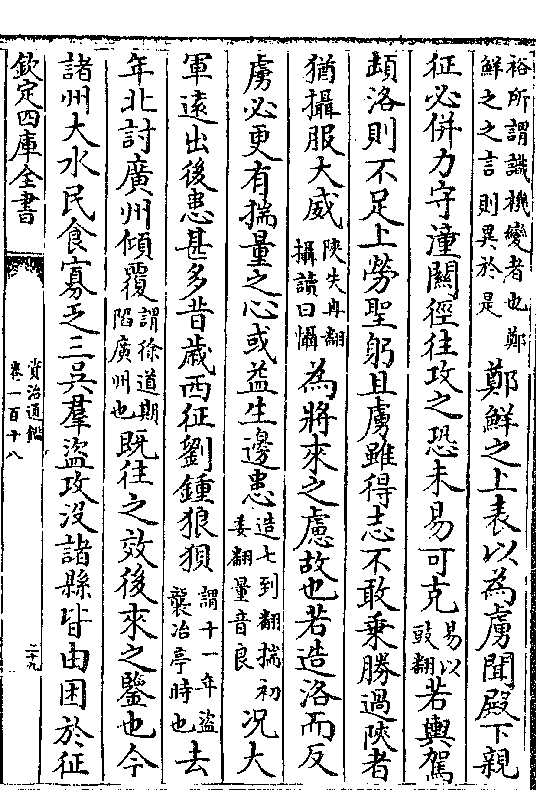 裕所謂識機變者也鄭
鮮之之言則異於是
鄭鮮之上表以為虜聞殿下親
征必併力守潼關徑往攻之恐未易可克
易以
豉翻
若輿駕
頓洛則不足上勞聖躬且虜雖得志不敢乗勝過陜者
猶攝服大威
陜失冉翻
攝讀曰懾
為將來之慮故也若造洛而反
虜必更有揣量之心或益生邊患
造七到翻揣初
委翻量音良
况大
軍遠出後患甚多昔歲西征劉鍾狼狽
謂十一年盜
襲冶亭時也
去
年北討廣州傾覆
謂徐道期
陷廣州也
既往之效後來之鑒也今
諸州大水民食寡乏三吳羣盜攻没諸縣皆由困於征
欽定四庫全書
資治通鑑
卷一百十八
二十九